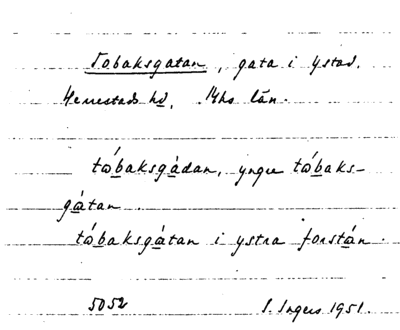 Tobaksgatan, gata i Ystad.
Herrestads hd, Mhs län.
tóbaksgádan, yngre tóbaks-
gátan.
tóbaksgátan i ystra forstán.
5052 I. Ingers 1951.